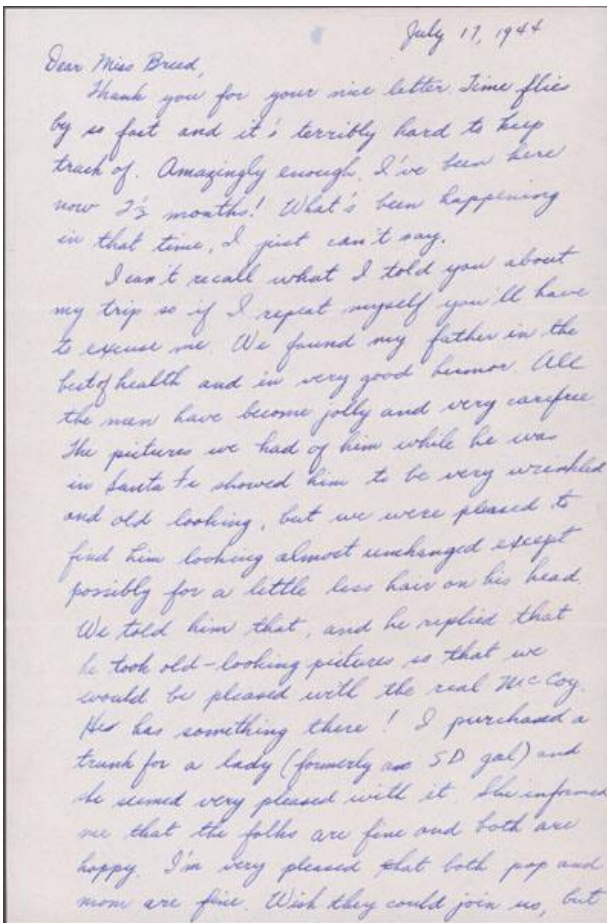 July 17, 1944
Dear Miss Breed,
Thank you for your nice letter. Time flies
by so fast and it's terribly hard to keep
track of. Amazingly enough, I've been here
now 2½ months! What's been happening
in that time, I just can't say.
I can't recall what I told you about
my trip so if I repeat myself you'll have
to excuse me. We found my father in the
best of health and in very good humor. All
the men have become jolly and very carefree.
The pictures we had of him while he was
in Santa Fe showed him to be very wrinkled
and old looking, but we were pleased to
find him looking almost unchanged except
possibly for a little less hair on his head.
We told him that, and he replied that
he took old-looking pictures so that we
would be pleased with the real McCoy.
He has something there! I purchased a
trunk for a lady (formerly SD gal) and
she seemed very pleased with it. She informed
me that the folks are fine and both are
happy. I'm very pleased that both pop and
mom are fine. Wish they could join us, but